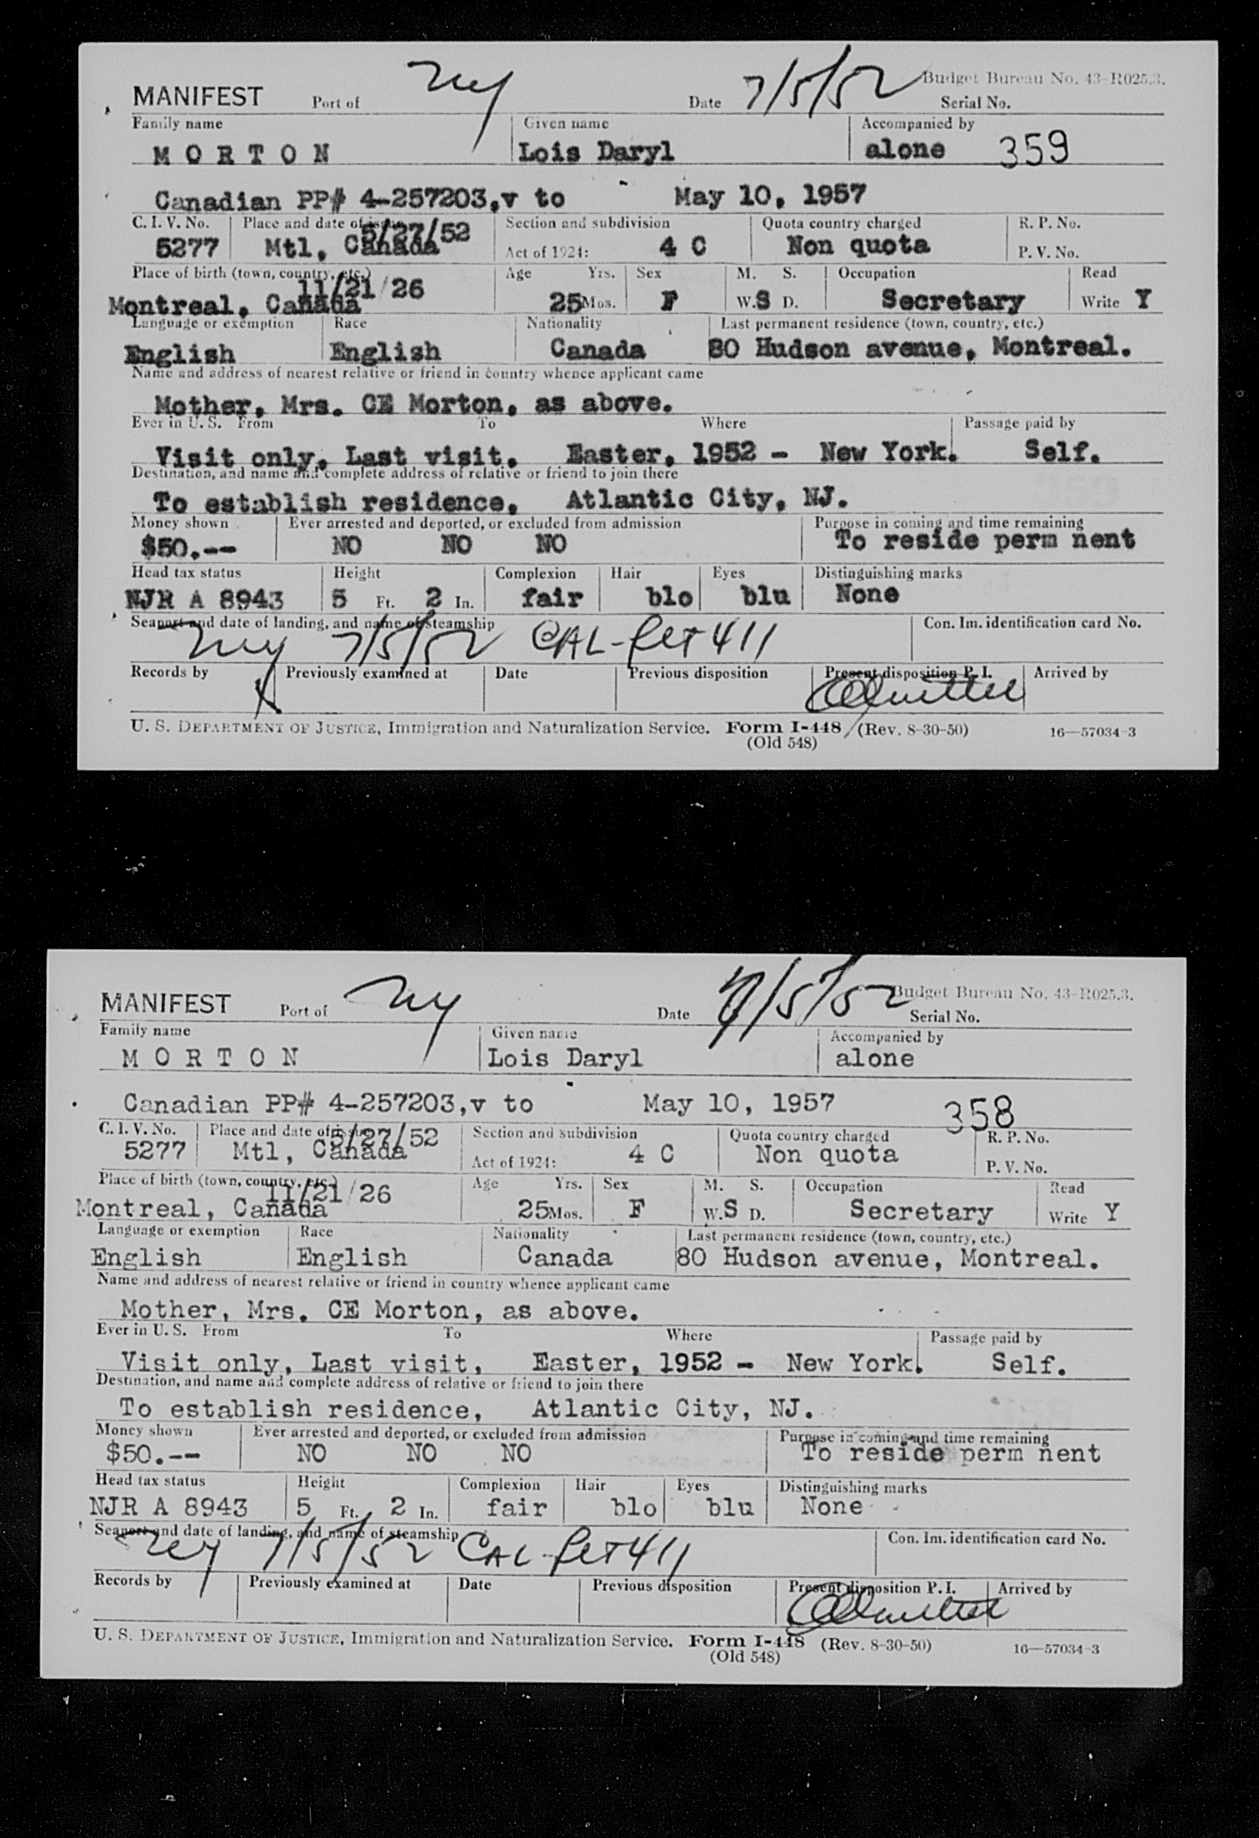 MANIFEST Port of NY Date 7/5/52 Budget Bureau No. 43-R025.3.
Serial No.
Family name Given name Accompanied by
M O R T O N Lois Daryl alone 359
Canadian PP# 4-257203,v to May 10, 1957
C. I. V. No. Place and date of issue 5/27/52 Section and subdivision Quota country charged R. P. No.
5277 Mtl, Canada Act of 1924: 4 C Non quota P. V. No.
Place of birth (town, country, etc.) 11/21/26 Age Yrs. Sex M. S. Occupation Read
Montreal, Canada 25 Mos. F W. S D. Secretary Write Y
Language or exemption Race Nationality Last permanent residence (town, country, etc.)
English English Canada 80 Hudson avenue, Montreal.
Name and address of nearest relative or friend in country whence applicant came
Mother, Mrs. CE Morton, as above.
Ever in U. S. From To Where Passage paid by
Visit only, Last visit, Easter, 1952 - New York. Self.
Destination, and name and complete address of relative or friend to join there
To establish residence, Atlantic City, NJ.
Money shown Ever arrested and deported, or excluded from admission Purpose in coming and time remaining
$50.-- NO NO NO To reside perm nent
Head tax status Height Complexion Hair Eyes Distinguishing marks
NJR A 8943 5 Ft. 2 In. fair blo blu None
Seaport and date of landing, and name of steamship Con. Im. identification card No.
NY 7/5/52 CAL-flt 411
Records by Previously examined at Date Previous disposition Present disposition P. I. Arrived by
U. S. DEPARTMENT OF JUSTICE, Immigration and Naturalization Service. Form I-448 (Rev. 8-30-50) 16—57034-3
(Old 548)
MANIFEST Port of NY Date 7/5/52 Budget Bureau No. 43-R025.3.
Serial No.
Family name Given name Accompanied by
M O R T O N Lois Daryl alone
Canadian PP# 4-257203,v to May 10, 1957 358
C. I. V. No. Place and date of issue 5/27/52 Section and subdivision Quota country charged R. P. No.
5277 Mtl, Canada Act of 1924: 4 C Non quota P. V. No.
Place of birth (town, country, etc.) 11/21/26 Age Yrs. Sex M. S. Occupation Read
Montreal, Canada 25 Mos. F W. S D. Secretary Write Y
Language or exemption Race Nationality Last permanent residence (town, country, etc.)
English English Canada 80 Hudson avenue, Montreal.
Name and address of nearest relative or friend in country whence applicant came
Mother, Mrs. CE Morton, as above.
Ever in U. S. From To Where Passage paid by
Visit only, Last visit, Easter, 1952 - New York. Self.
Destination, and name and complete address of relative or friend to join there
To establish residence, Atlantic City, NJ.
Money shown Ever arrested and deported, or excluded from admission Purpose in coming and time remaining
$50.-- NO NO NO To reside perm nent
Head tax status Height Complexion Hair Eyes Distinguishing marks
NJR A 8943 5 Ft. 2 In. fair blo blu None
Seaport and date of landing, and name of steamship Con. Im. identification card No.
NY 7/5/52 CAL-flt 411
Records by Previously examined at Date Previous disposition Present disposition P. I. Arrived by
U. S. DEPARTMENT OF JUSTICE, Immigration and Naturalization Service. Form I-448 (Rev. 8-30-50) 16—57034-3
(Old 548)